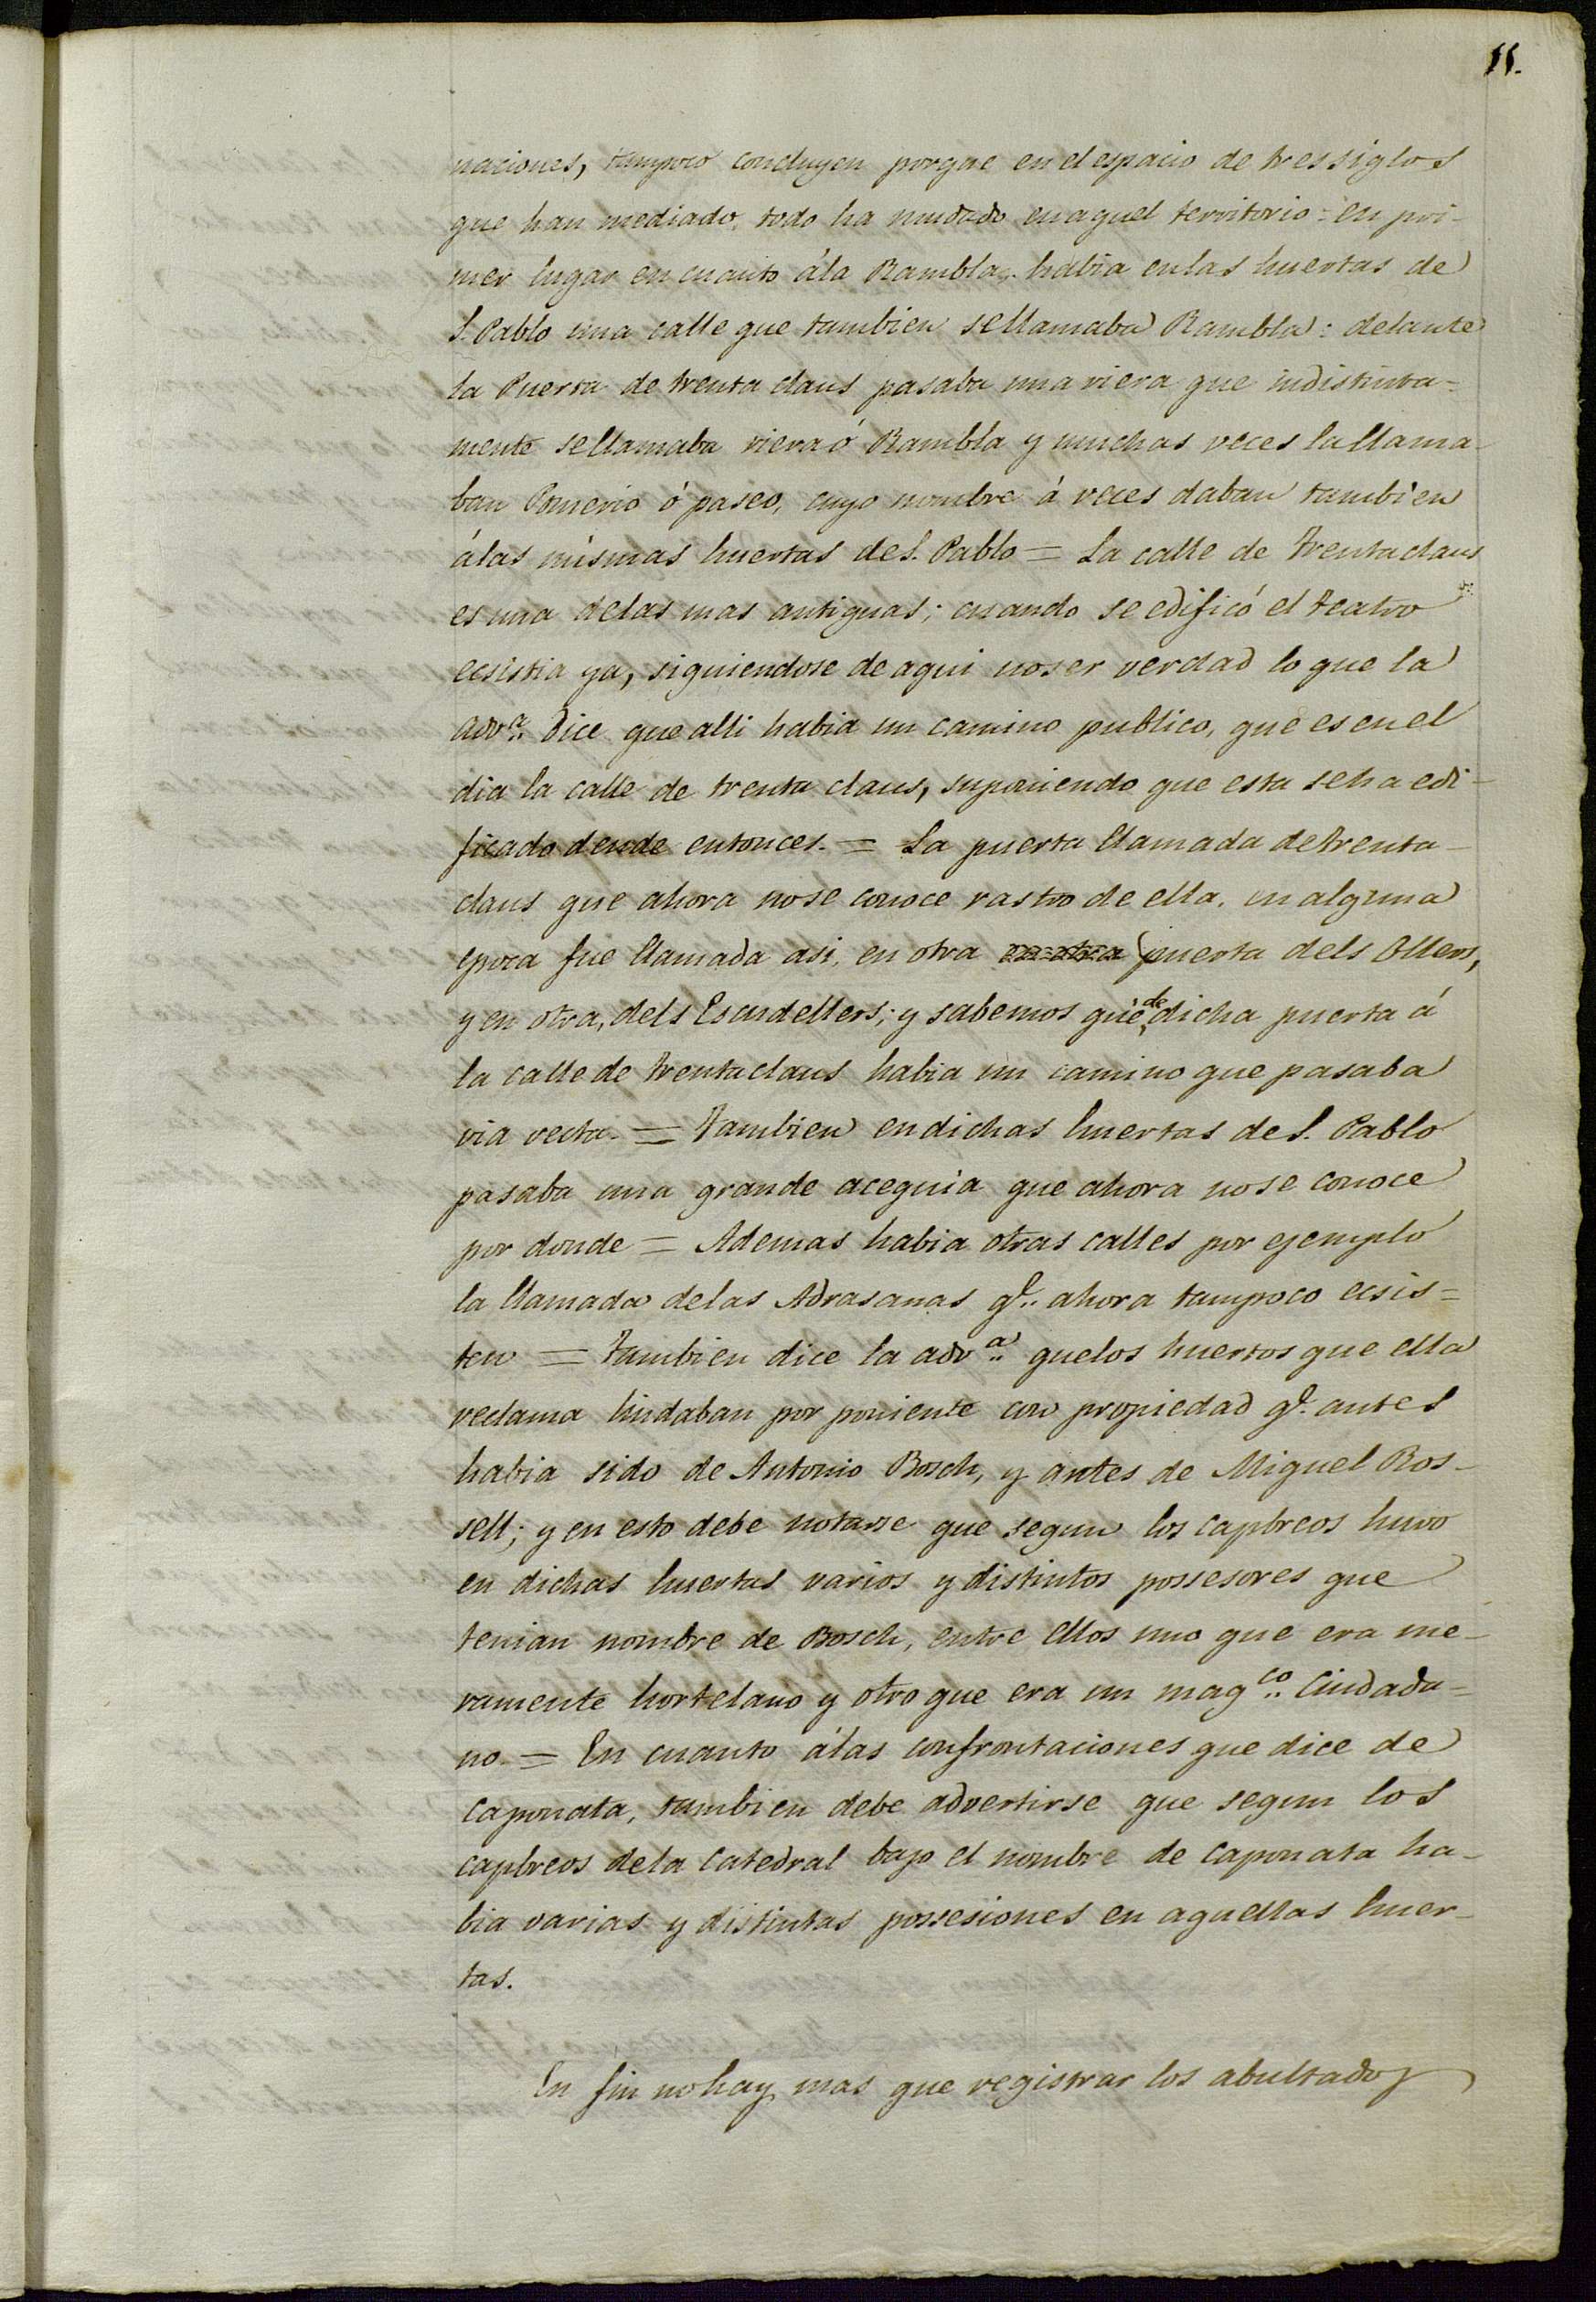 11.
naciones, tampoco concluyen porque en el espacio de tres siglos
que han mediado, todo ha mudado en aquel territorio = en pri-
mer lugar en cuanto á la Rambla, habia en las huertas de
S. Pablo una calle que tambien se llamaba Rambla: delante
la Puerta de trenta claus pasaba una riera que indistinta=
mente se llamaba riera ó Rambla y muchas veces la llama-
ban Pomerio ó paseo, cuyo nombre á veces daban tambien
á las mismas huertas de S. Pablo = La calle de trentaclaus
es una de las mas antiguas; cuando se edificó el teatro
ecsistia ya, siguiendose de aqui no ser verdad lo que la
advª. dice que alli habia un camino publico, que es en el
dia la calle de trenta claus, suponiendo que esta se ha edi-
ficado desde entonces. = La puerta llamada de trenta-
claus que ahora no se conoce rastro de ella, en alguna
epoca fue llamada asi, en otra en otra puerta dels Ollers,
y en otra, dels Escudellers; y sabemos que de dicha puerta á
la calle de trentaclaus habia un camino que pasaba
via recta. = Tambien en dichas huertas de S. Pablo
pasaba una grande acequia que ahora no se conoce
por donde = Ademas habia otras calles por ejemplo
la llamada de las Adrasanas qe.. ahora tampoco ecsis=
ten = Tambien dice la advª.. que los huertos que ella
reclama lindaban por poniente con propiedad qe. antes
habia sido de Antonio Bosch, y antes de Miguel Ros-
sell; y en esto debe notarse que segun los capbreos huvo
en dichas huertas varios y distintos possesores que
tenian nombre de Bosch, entre ellos uno que era me-
ramente hortelano y otro que era un magco.. Ciudada=
no. = En cuanto á las confrontaciones que dice de
Caponata, tambien debe advertirse que segun los
capbreos de la Catedral bajo el nombre de Caponata ha-
bia varias y distintas possesiones en aquellas huer-
tas.
En fin no hay mas que registrar los abultados